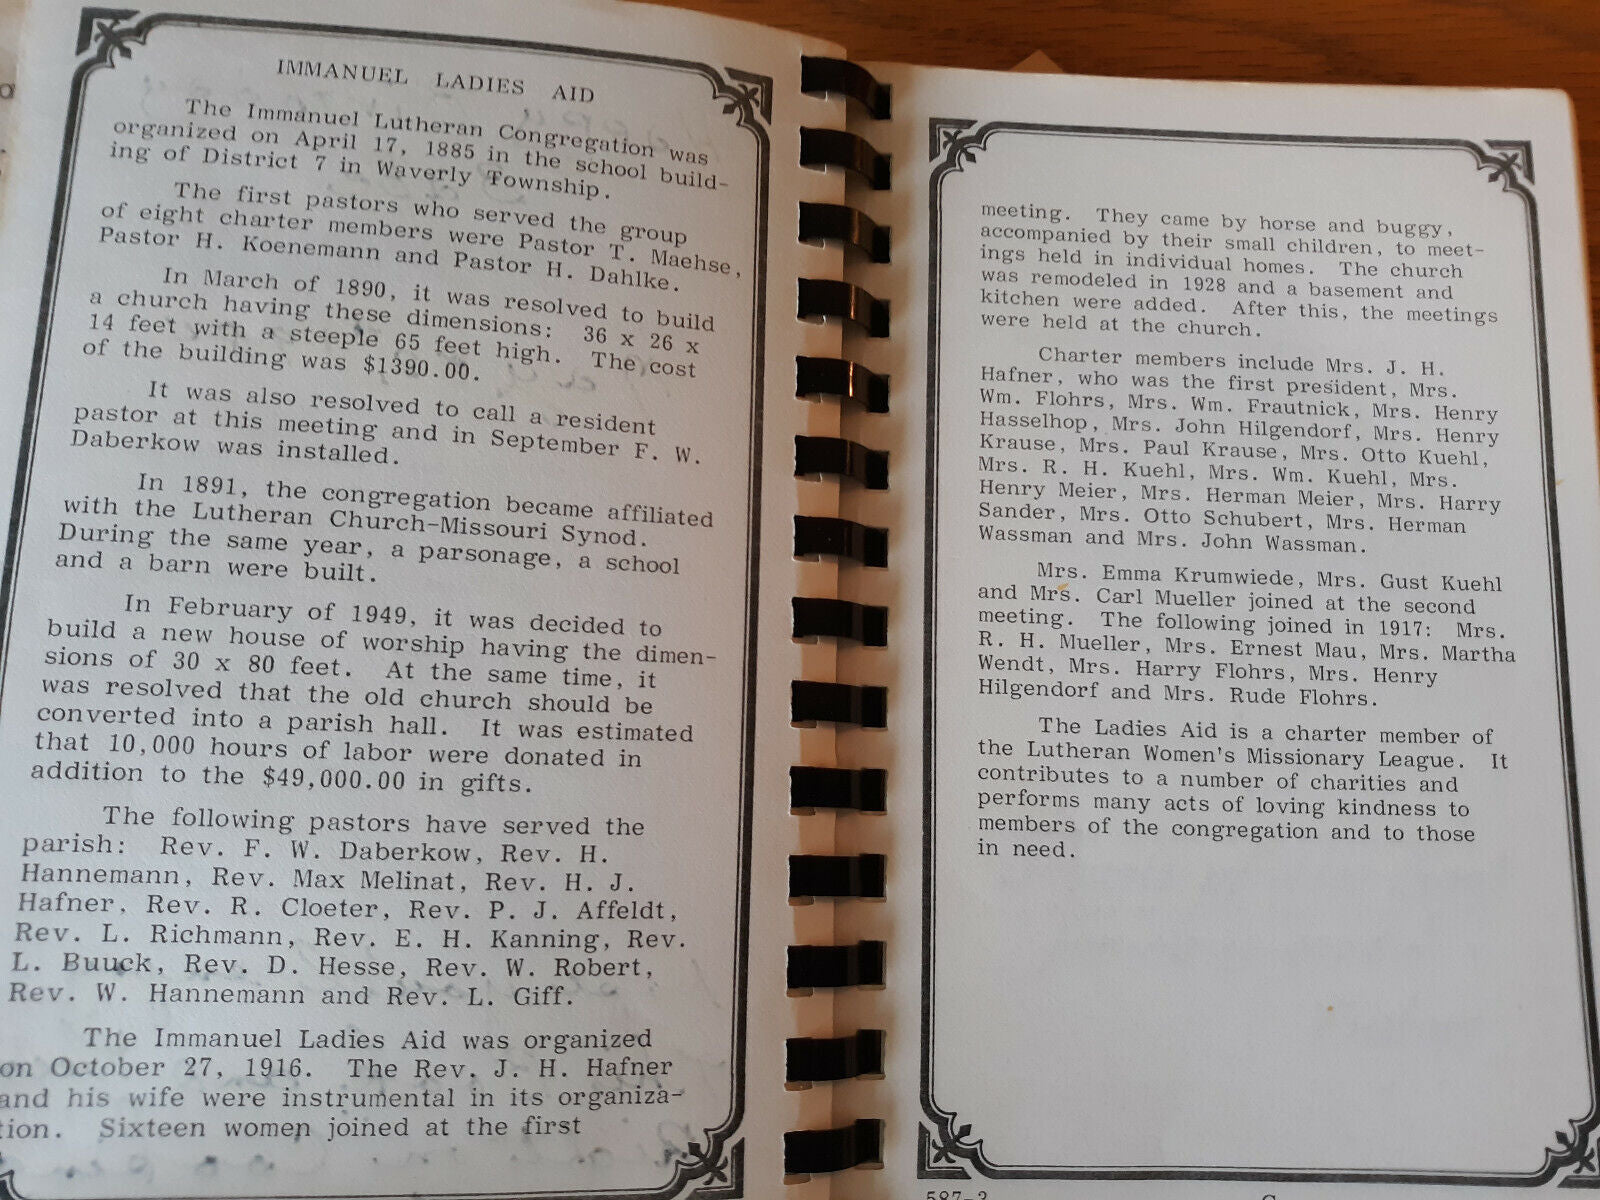 IMMANUEL LADIES AID
The Immanuel Lutheran Congregation was
organized on April 17, 1885 in the school build-
ing of District 7 in Waverly Township.
The first pastors who served the group
of eight charter members were Pastor T. Maehse,
Pastor H. Koenemann and Pastor H. Dahlke.
In March of 1890, it was resolved to build
a church having these dimensions: 36 x 26 x
14 feet with a steeple 65 feet high. The cost
of the building was $1390.00.
It was also resolved to call a resident
pastor at this meeting and in September F. W.
Daberkow was installed.
In 1891, the congregation became affiliated
with the Lutheran Church-Missouri Synod.
During the same year, a parsonage, a school
and a barn were built.
In February of 1949, it was decided to
build a new house of worship having the dimen-
sions of 30 x 80 feet. At the same time, it
was resolved that the old church should be
converted into a parish hall. It was estimated
that 10,000 hours of labor were donated in
addition to the $49,000.00 in gifts.
The following pastors have served the
parish: Rev. F. W. Daberkow, Rev. H.
Hannemann, Rev. Max Melinat, Rev. H. J.
Hafner, Rev. R. Cloeter, Rev. P. J. Affeldt,
Rev. L. Richmann, Rev. E. H. Kanning, Rev.
L. Buuck, Rev. D. Hesse, Rev. W. Robert,
Rev. W. Hannemann and Rev. L. Giff.
The Immanuel Ladies Aid was organized
on October 27, 1916. The Rev. J. H. Hafner
and his wife were instrumental in its organiza-
tion. Sixteen women joined at the first
meeting. They came by horse and buggy,
accompanied by their small children, to meet-
ings held in individual homes. The church
was remodeled in 1928 and a basement and
kitchen were added. After this, the meetings
were held at the church.
Charter members include Mrs. J. H.
Hafner, who was the first president, Mrs.
Wm. Flohrs, Mrs. Wm. Frautnick, Mrs. Henry
Hasselhop, Mrs. John Hilgendorf, Mrs. Henry
Krause, Mrs. Paul Krause, Mrs. Otto Kuehl,
Mrs. R. H. Kuehl, Mrs. Wm. Kuehl, Mrs.
Henry Meier, Mrs. Herman Meier, Mrs. Harry
Sander, Mrs. Otto Schubert, Mrs. Herman
Wassman and Mrs. John Wassman.
Mrs. Emma Krumwiede, Mrs. Gust Kuehl
and Mrs. Carl Mueller joined at the second
meeting. The following joined in 1917: Mrs.
R. H. Mueller, Mrs. Ernest Mau, Mrs. Martha
Wendt, Mrs. Harry Flohrs, Mrs. Henry
Hilgendorf and Mrs. Rude Flohrs.
The Ladies Aid is a charter member of
the Lutheran Women's Missionary League. It
contributes to a number of charities and
performs many acts of loving kindness to
members of the congregation and to those
in need.